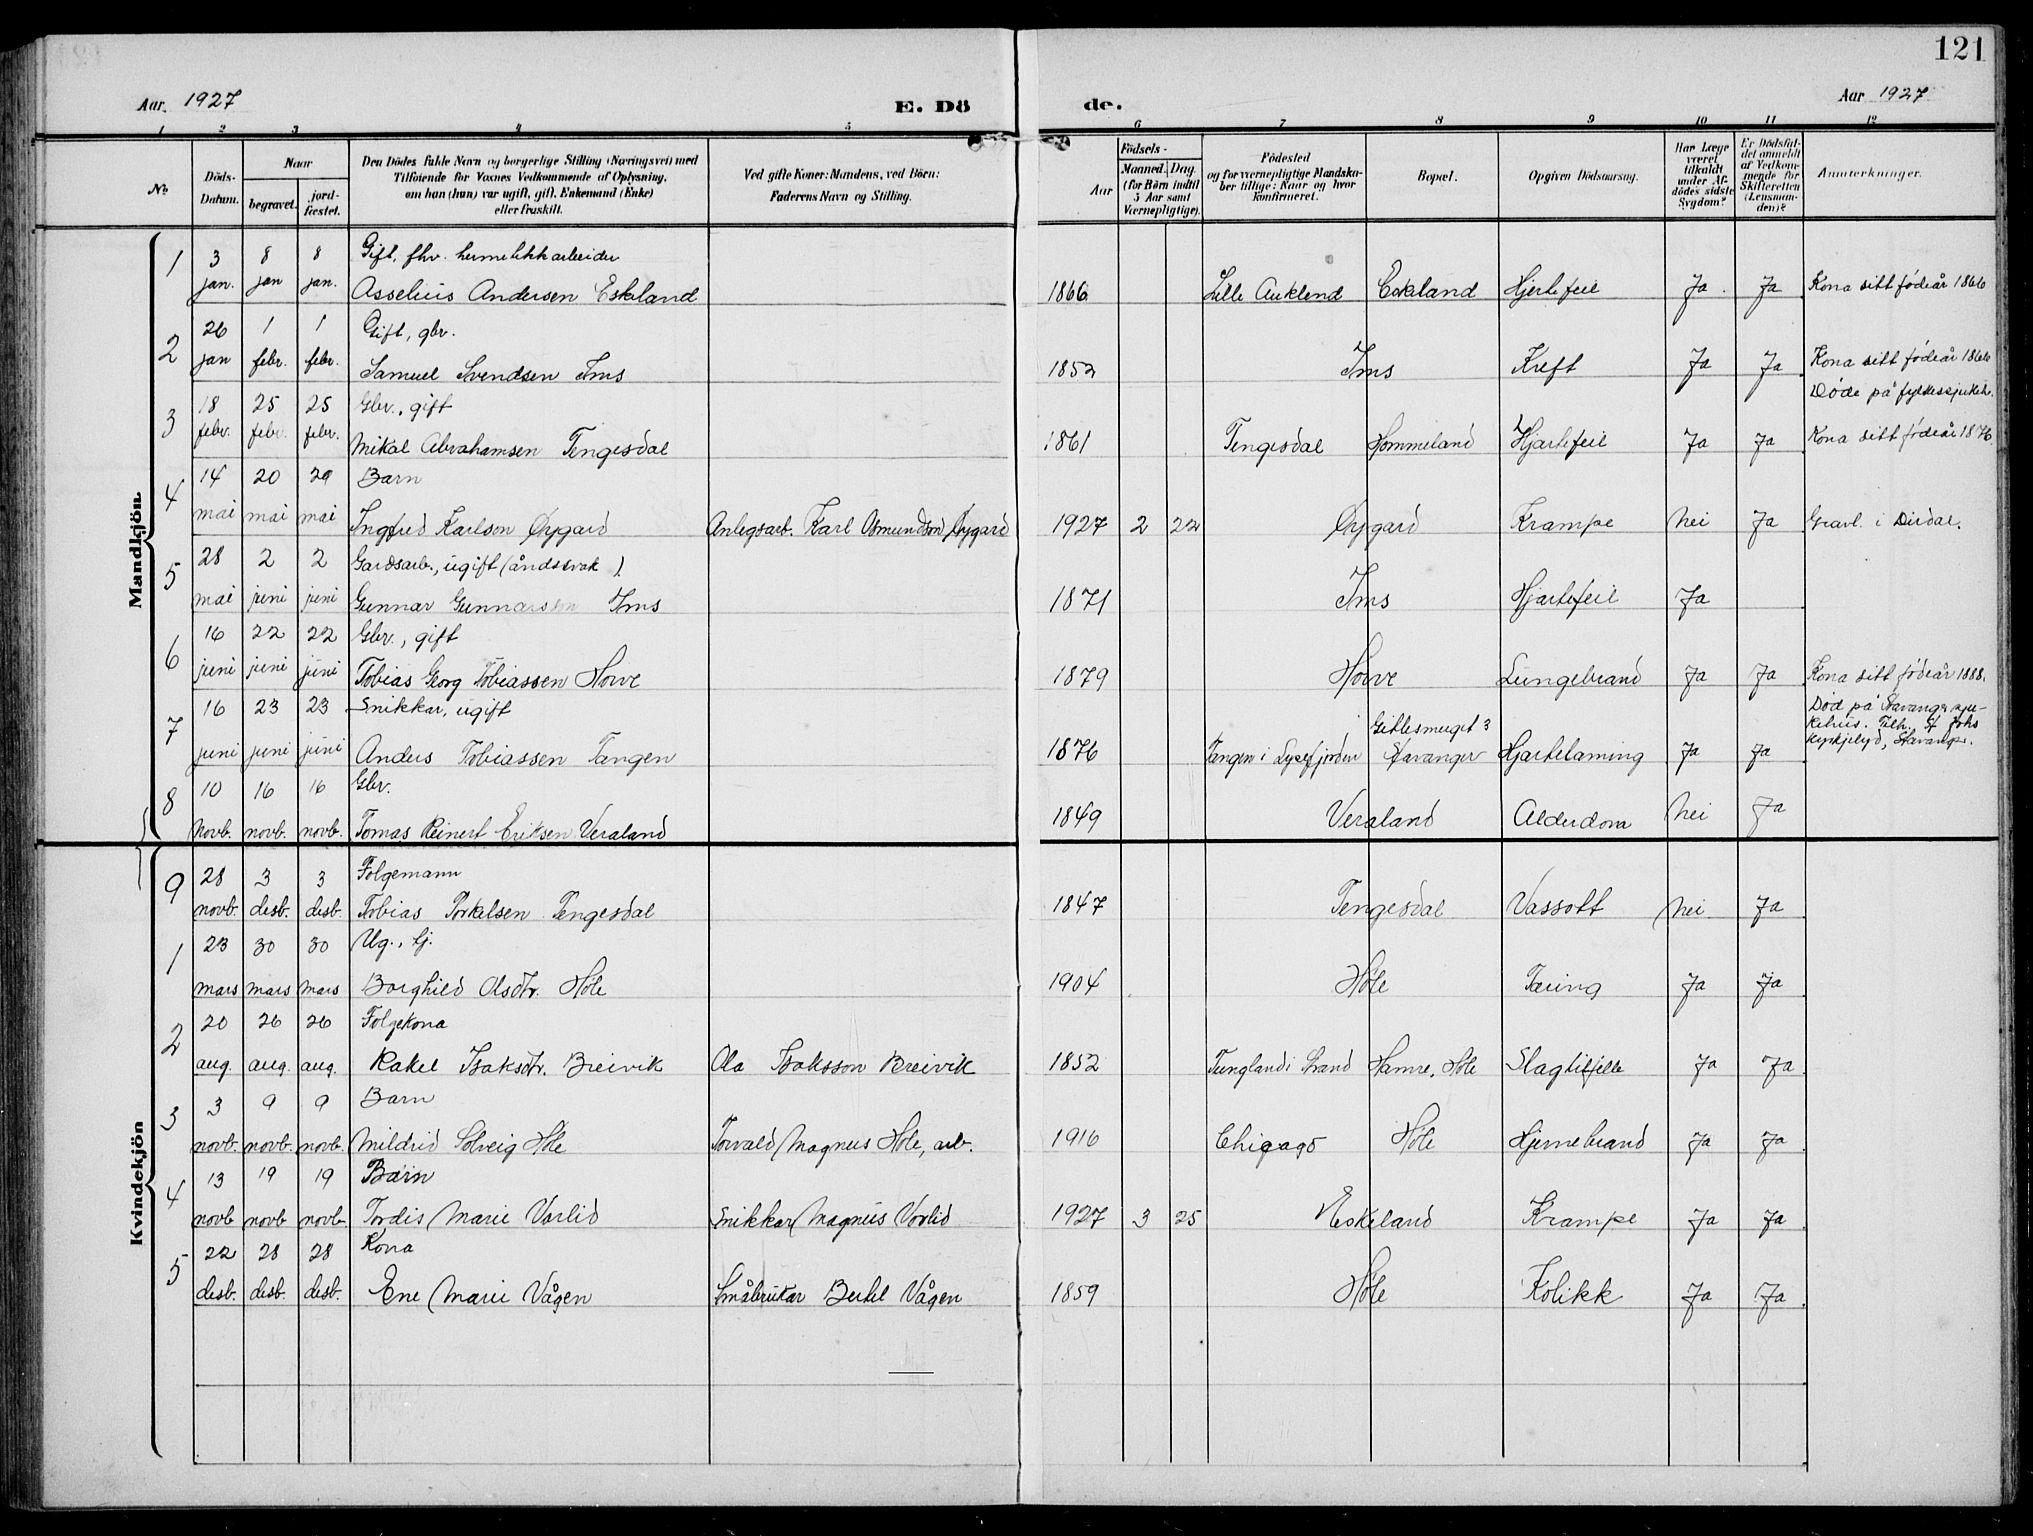 121
Aar. 1927
E. Dö
de.
Aar 1927
1 2 3 4 5 6 7 8 9 10 11 12
№
Döds-
Datum.
Naar
begravet.
jord-
fæstet.
Den Dödes fulde Navn og borgerlige Stilling (Næringsvei) med
Tilföiende for Voxnes Vedkommende af Oplysning,
om han (hun) var ugift, gift, Enkemand (Enke)
eller fraskilt.
Ved gifte Koner: Mandens, ved Börn:
Faderens Navn og Stilling.
Födsels-
Aar
Maaned. Dag
(for Börn indtil
5 Aar samt
Værnepligtige).
Födested
og for værnepligtige Mandska-
ber tillige: Naar og hvor
konfirmeret.
Bopæl.
Opgiven Dödsaarsag.
Har Læge
været
tilkaldt
under Af-
dödes sidste
Sygdom?
Er Dödsfal-
det anmeldt
af Vedkom-
mende for
Skifteretten
(Lensman-
den)?
Anmærkninger.
Mandkjön.
1 3 8 8 Gift, fhv. hermetikkarbeider
jan. jan jan. Asselius Andersen Eskeland 1866 Lille Auklend Eskeland Hjertefeil Ja Ja Kona sitt fødeår 1866
2 26 1 1 Gift, gbr.
jan febr. febr. Samuel Svendsen Ims 1852 Ims Kreft Ja Ja Kona sitt fødeår 1866
3 18 25 25 Gbr., gift Døde på fylkessjukeh.
febr. febr. febr. Mikal Abrahamsen Tengesdal 1861 Tengesdal Hommeland Hjartefeil Ja Ja Kona sitt fødeår 1876
4 14 20 29 Barn
mai mai mai Ingfred Karlson Øygard Anlegsarb. Karl Osmundson Øygard 1927 2 22 Øygard Krampe Nei Ja Gravl. i Dirdal.
5 28 2 2 Gardsarb., ugift (åndssvak)
mai juni juni Gunnar Gunnarsson Ims 1871 Ims Hjartefeil Ja
6 16 22 22 Gbr., gift
juni juni juni Tobias Georg Tobiassen Horve 1879 Horve Lungebrand Ja Ja Kona sitt fødeår 1888.
7 16 23 23 Snikkar, ugift Gitlesmuget 3 Død på Stavanger sju-
kehus. Tilh. St Johs
juni juni juni Anders Tobiassen Tangen 1876 Tangen i Lysefjorden Stavanger Hjartelaming Ja Ja kyrkjelyd, Stavanger.
8 10 16 16 Gbr.
novb. novb. novb. Tomas Reinert Eriksen Veraland 1849 Veraland Alderdom Nei Ja
9 28 3 3 Følgemann
novb. desb. desb. Tobias Torkelsen Tengesdal 1847 Tengesdal Vassott Nei Ja
Kvindekjön
1 23 30 30 Ug., tj.
mars mars mars Borghild Olsdtr. Høle 1904 Høle Tæring Ja Ja
2 20 26 26 Følgekona
aug. aug. aug. Rakel Isaksdtr. Breivik Ola Isaksson Breivik 1852 Tungland i Strand Hamre, Høle Slagtilfelle Ja Ja
3 3 9 9 Barn
novb. novb. novb. Mildrid Solveig Høle Torvald Magnus Høle, arb. 1916 Chicago Høle Hjernebrand Ja Ja
4 13 19 19 Barn
novb novb novb. Tordis Marie Vorlid Snikkar Magnus Vorlid 1927 3 25 Eskeland Krampe Ja Ja
5 22 28 28 Kona
desb. desb. desb. Ene Marie Vågen Småbrukar Bertel Vågen 1859 Høle Kolikk Ja Ja